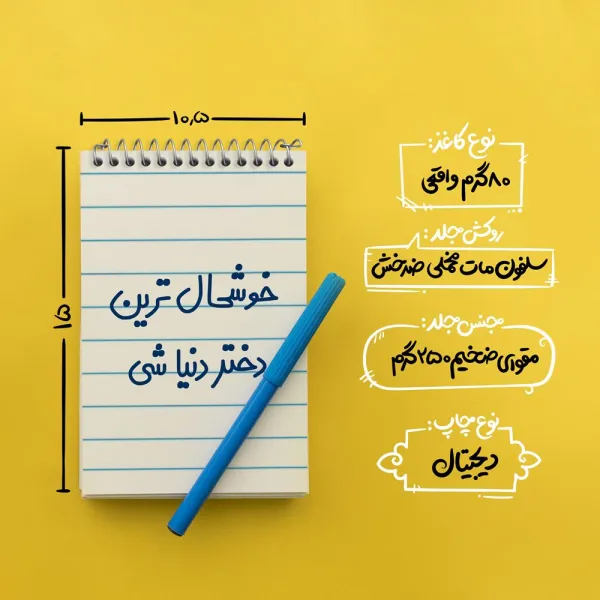 ۱۰٫۵
۱۵
خوشحال ترین
دختر دنیا شی
نوع کاغذ:
۸۰گرم واقعی
روکش جلد:
سلفون مات مخملی ضدخش
جنس جلد:
مقوای ضخیم ۲۵۰ گرم
نوع چاپ:
دیجیتال